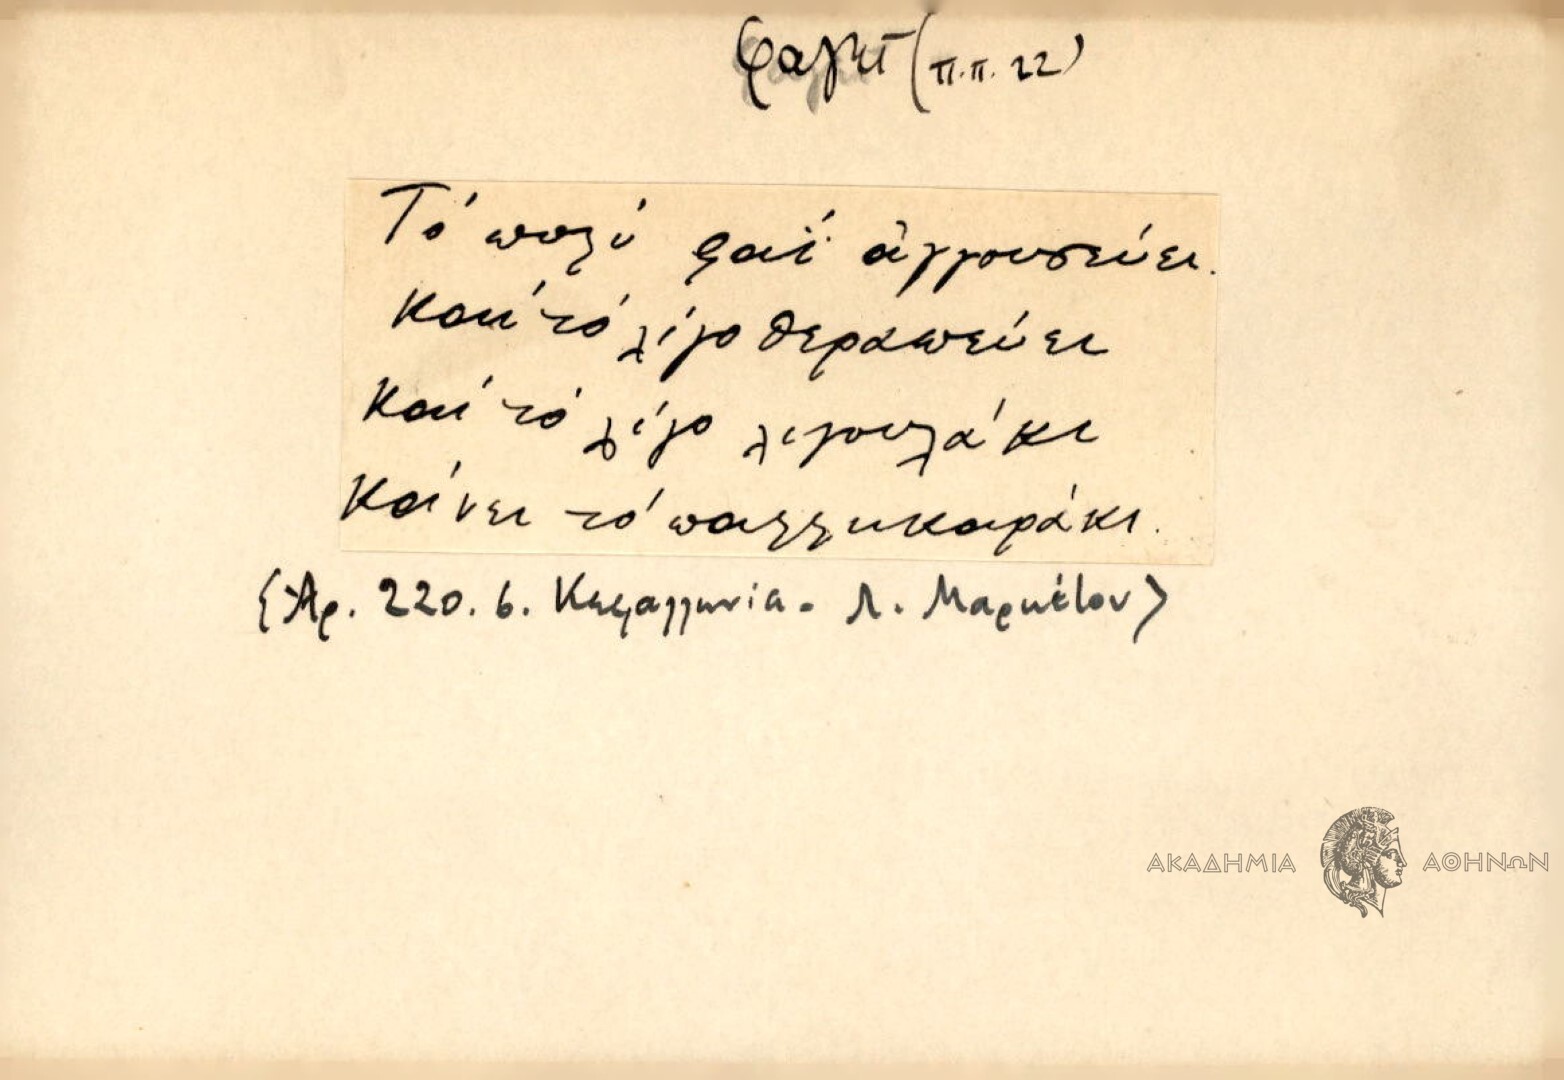 φαγητ (π.π. 22)
Τό πολύ φαΐ ἀγρουσεύει.
Καί τό λίγο θεραπεύει
Καί τό λίγο λιγουλάκι
Κάνει τό παλληκαράκι.
(Ἀρ. 220. 6. Κεφαλλωνία - Λ. Μαρκέτου)
ΑΚΑΔΗΜΙΑ ΑΘΗΝΩΝ